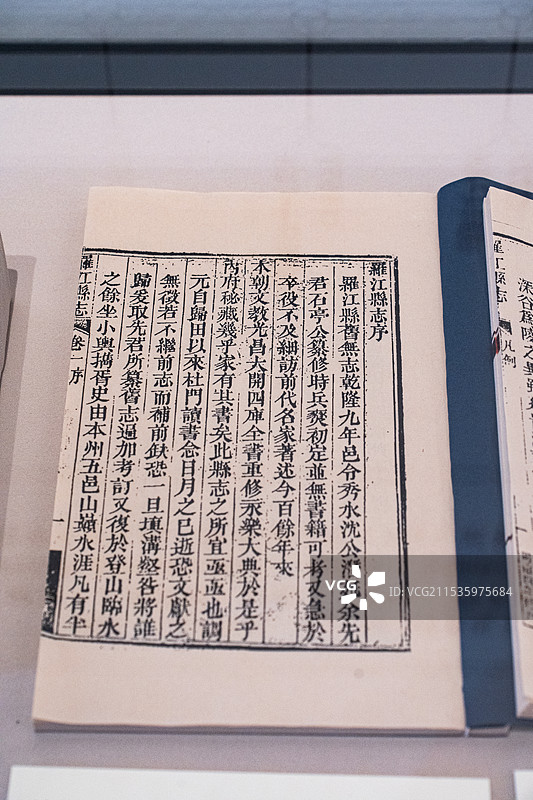 羅江縣志序
羅江縣舊無志乾隆九年邑令秀水沈公余先
君石亭公纂修時兵燹初定並無書籍可考又急於
卒役不及細訪前代名家著述今百餘年來
本朝文教光昌大開四庫全書重修永樂大典於是乎
內府秘藏幾乎家有其書矣此縣志之所宜亟亟也調
元自歸田以來杜門讀書念日月之已逝恐文獻之
無徵若不繼前志而補前缺恐一旦填溝壑咎將誰
歸爰取先君所纂舊志遍加考訂又復於登山臨水
之餘坐小輿攜胥史由本州五邑山巔水涯凡有半
羅江縣志 卷一序 一
深谷為陵之異
羅江縣志 凡例
VCG 視覺中國
ID: VCG211535975684